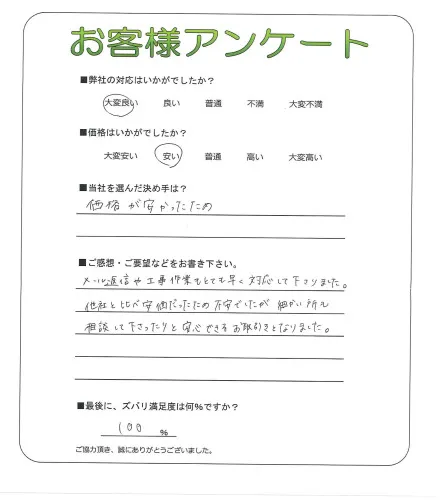 お客様アンケート
■弊社の対応はいかがでしたか?
大変良い 良い 普通 不満 大変不満
■価格はいかがでしたか?
大変安い 安い 普通 高い 大変高い
■当社を選んだ決め手は?
価格が安かったため
■ご感想・ご要望などをお書き下さい。
メール返信や工事作業もとても早く対応して下さりました。
他社と比べ安価だったため不安でしたが細かい所も
相談して下さったりと安心できるお取引きとなりました。
■最後に、ズバリ満足度は何%ですか?
100 %
ご協力頂き、誠にありがとうございました。